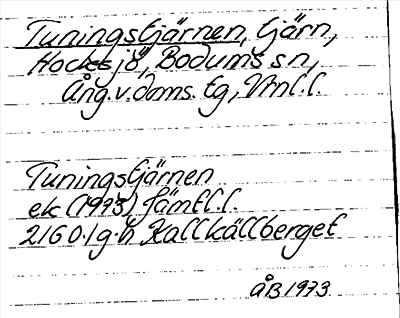 Tuningstjärnen, tjärn,
Hocksjö, Bodums sn,
Ång.v.doms. tg, Vnl.l.
Tuningstjärnen
ek (1973) Jämtl.l.
21601 g-h Kallkällberget
ÅB 1973